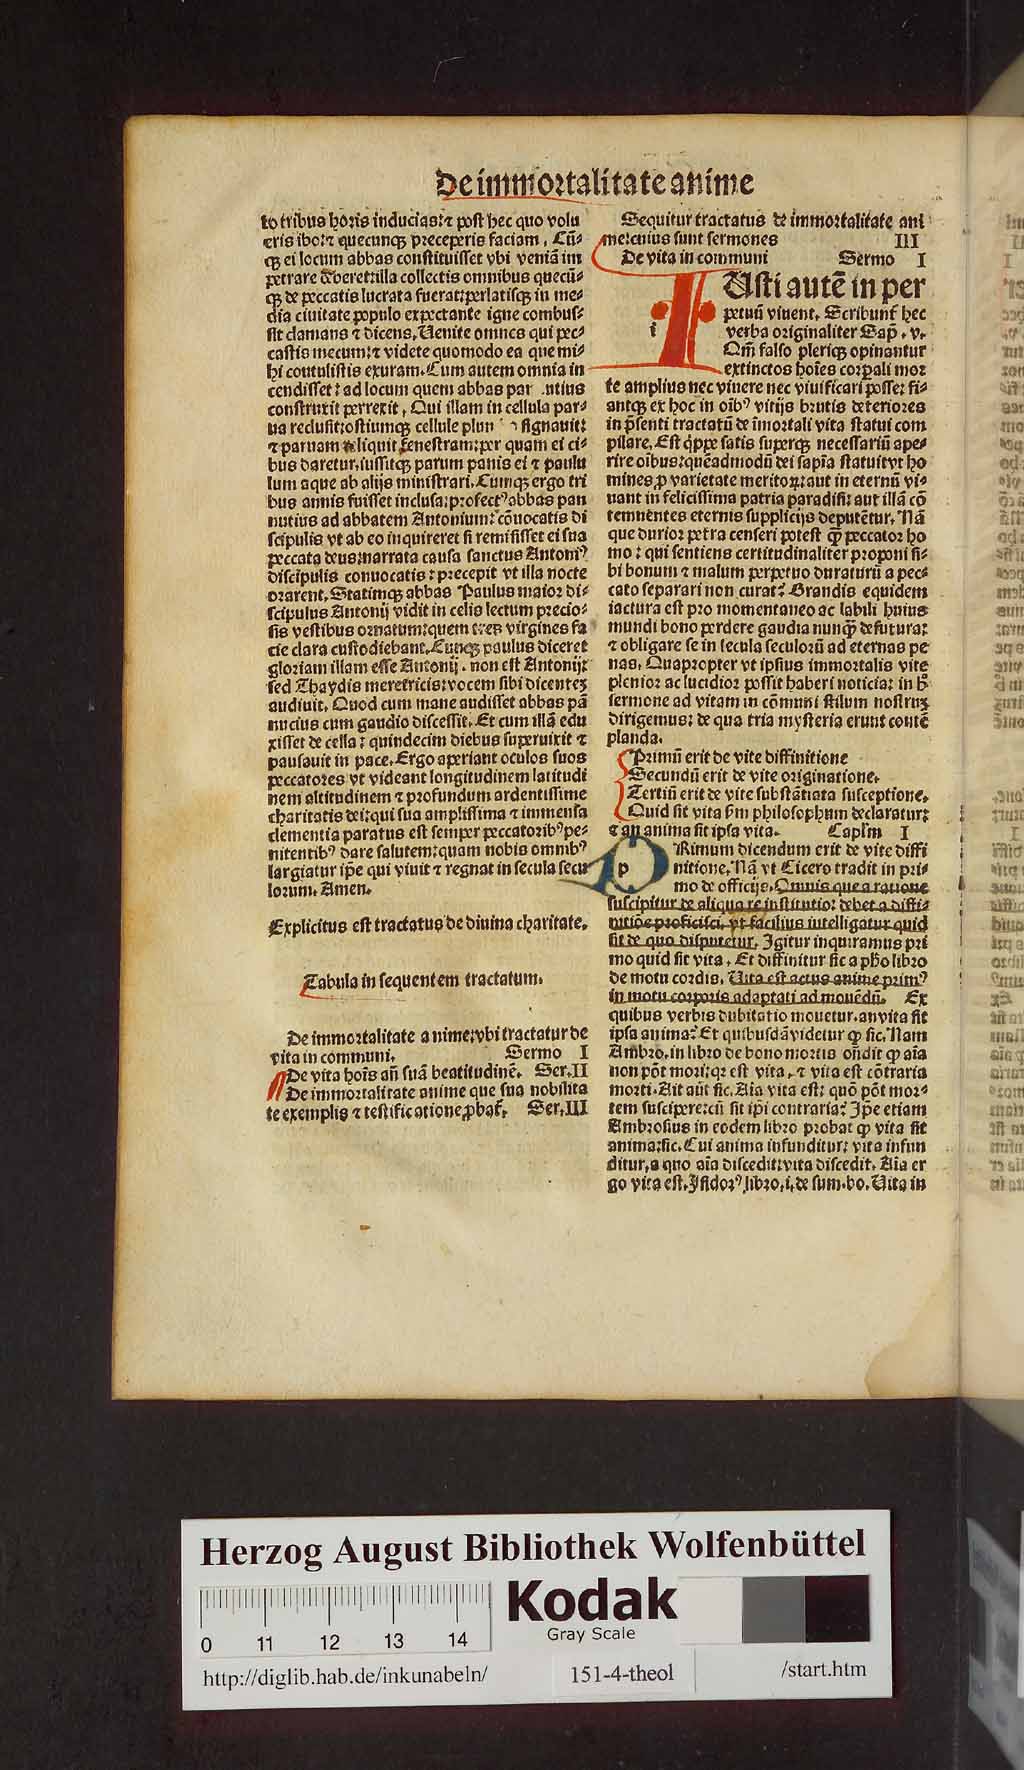 De immortalitate anime
to tribus horis inducias: ⁊ post hec quo volu
eris ibo: ⁊ quecunqȝ preceperis faciam. Cū-
qȝ ei locum abbas constituisset vbi veniā im
petrare deberet: illa collectis omnibus quecū-
qȝ de peccatis lucrata fuerat: perlatisqȝ in me-
dia ciuitate populo expectante igne combus-
sit clamans ⁊ dicens. Uenite omnes qui pec-
castis mecum: ⁊ videte quomodo ea que mi-
hi contulistis exuram. Cum autem omnia in
cendisset: ad locum quem abbas par ntius
construxit perrexit. Qui illam in cellula par-
ua reclusit: ostiumqȝ cellule plun signauit:
⁊ paruam reliquit fenestram: per quam ei ci-
bus daretur. iussitqȝ parum panis ei ⁊ paulu
lum aque ab alijs ministrari. Cumqȝ ergo tri
bus annis fuisset inclusa: profectꝰ abbas pan
nutius ad abbatem Antonium: cōuocatis di
scipulis vt ab eo inquireret si remisisset ei sua
peccata deus: narrata causa sanctus Antoniꝰ
discipulis conuocatis: precepit vt illa nocte
orarent. Statimqȝ abbas Paulus maior di-
scipulus Antonij vidit in celis lectum precio-
sis vestibus ornatum: quem tres virgines fa
cie clara custodiebant. Cunqȝ paulus diceret
gloriam illam esse Antonij. non est Antonij:
sed Thaydis meretricis: vocem sibi dicenteȝ
audiuit. Quod cum mane audisset abbas pā
nucius cum gaudio discessit. Et cum illā edu
xisset de cella: quindecim diebus superuixit ⁊
pausauit in pace. Ergo aperiant oculos suos
peccatores vt videant longitudinem latitudi
nem altitudinem ⁊ profundum ardentissime
charitatis dei: qui sua amplissima ⁊ immensa
clementia paratus est semper peccatoribꝰ pe-
nitentibꝰ dare salutem: quam nobis omnibꝰ
largiatur ip̄e qui viuit ⁊ regnat in secula secu
lorum. Amen.
Explicitus est tractatus de diuina charitate.
Tabula in sequentem tractatum.
De immortalitate anime: vbi tractatur de
vita in communi. Sermo I
De vita hoīs an̄ suā beatitudinē. Ser. II
De immortalitate anime que sua nobilita
te exemplis ⁊ testificatione ꝓbat̄. Ser. III
Sequitur tractatus de immortalitate ani
me: cuius sunt sermones III
De vita in communi Sermo I
i Usti autē in per
petuū viuent. Scribunt̄ hec
verba originaliter Sap̄. v.
Qm̄ falso pleriqȝ opinantur
extinctos hoīes corꝑali mor
te amplius nec viuere nec viuificari posse: fi-
antqȝ ex hoc in oībꝰ vitijs brutis deteriores
in p̄senti tractatū de īmortali vita statui com
pilare. Est q̄ppe satis superqȝ necessariū ape-
rire oībus: quēadmodū dei sapīa statuit vt ho
mines ꝓ varietate meritoꝝ: aut in eternū vi-
uant in felicissima patria paradisi: aut illā cō
temnentes eternis supplicijs deputētur. Nā
que durior petra censeri potest q̄ȝ peccator ho
mo: qui sentiens certitudinaliter proponi si-
bi bonum ⁊ malum perpetuo duraturū a pec-
cato separari non curat? Grandis equidem
iactura est pro momentaneo ac labili huius
mundi bono perdere gaudia nunq̄ȝ defutura:
⁊ obligare se in secula seculorū ad eternas pe
nas. Quapropter vt ipsius immortalis vite
plenior ac lucidior possit haberi noticia: in hͦ
sermone ad vitam in cōmuni stilum nostruȝ
dirigemus: de qua tria mysteria erunt contē
planda.
Primū erit de vite diffinitione
Secundū erit de vite originatione.
Tertiū erit de vite substātiata susceptione.
Quid sit vita ẜm philosophum declaratur:
⁊ an anima sit ipsa vita. Caplm̄ I
p Rimum dicendum erit de vite diffi
nitione. Nā vt Cicero tradit in pri-
mo de officijs. Omnis que a ratione
suscipitur de aliqua re institutio: debet a diffi-
nitiōe proficisci. vt facilius intelligatur quid
sit de quo disputetur. Igitur inquiramus pri
mo quid sit vita. Et diffinitur sic a ph̄o libro
de motu cordis. Uita est actus anime primꝰ
in motu corporis adaptati ad mouēdū. Ex
quibus verbis dubitatio mouetur. an vita sit
ipsa anima? Et quibusdā videtur ꝙ sic. Nam
Ambro. in libro de bono mortis on̄dit ꝙ aīa
non pōt mori: qꝛ est vita. ⁊ vita est cōtraria
morti. Ait aūt sic. Aīa vita est: quō pōt mor-
tem suscipere: cū sit ip̄i contraria? Ip̄e etiam
Ambrosius in eodem libro probat ꝙ vita sit
anima: sic. Cui anima infunditur: vita infun
ditur. a quo aīa discedit: vita discedit. Aīa er
go vita est. Isidorꝰ libro. i. de sum. bo. Uita in
Herzog August Bibliothek Wolfenbüttel
0 11 12 13 14
Kodak
Gray Scale
http://diglib.hab.de/inkunabeln/ 151-4-theol /start.htm